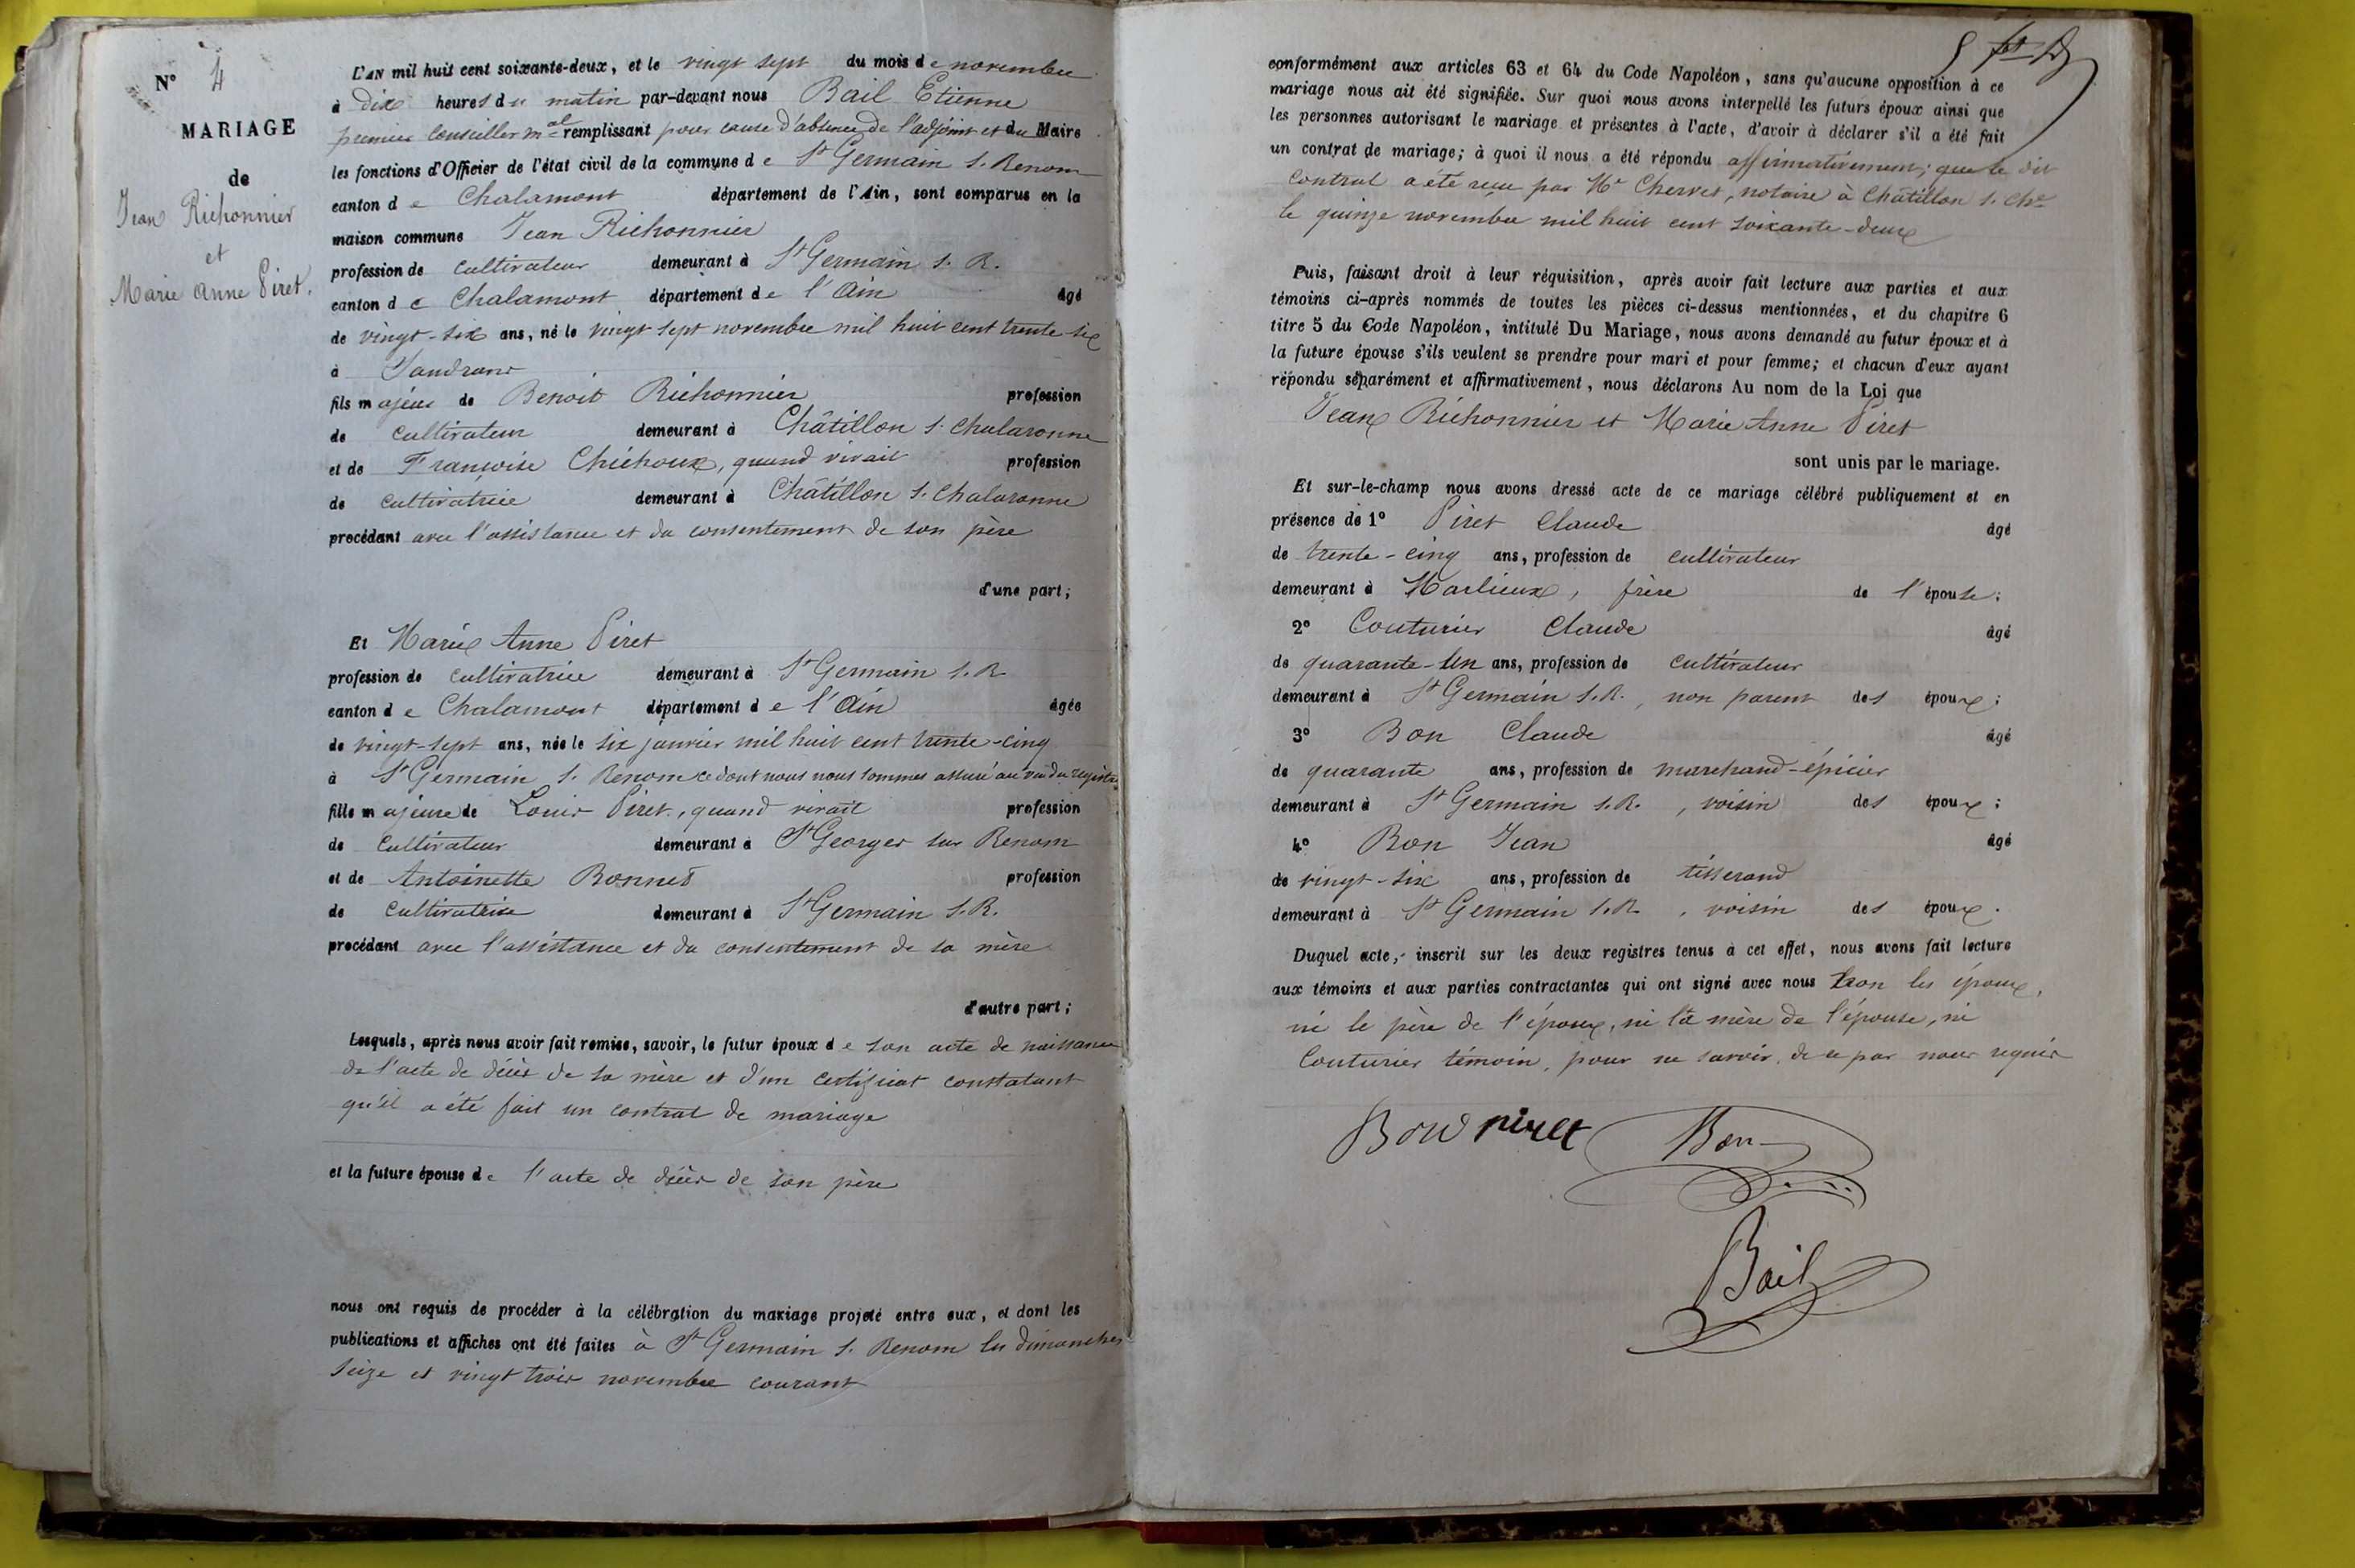 N° 4
MARIAGE
de
Jean Richonnier
et
Marie Anne Piret.
L'AN mil huit cent soixante-deux, et le vingt sept du mois de novembre
à dix heures du matin par-devant nous Bail Etienne
premier Conseiller mal remplissant pour cause d'absence de l'adjoint et du Maire
les fonctions d'Officier de l'état civil de la commune de St Germain s. Renom
canton de Chalamont département de l'Ain, sont comparus en la
maison commune Jean Richonnier
profession de cultivateur demeurant à St Germain s. R.
canton de Chalamont département de l'Ain âgé
de vingt-six ans, né le vingt sept novembre mil huit cent trente-six
à Sandrans
fils majeur de Benoit Richonnier profession
de cultivateur demeurant à Châtillon s. Chalaronne
et de Françoise Chichoux, quand vivait profession
de cultivatrice demeurant à Châtillon s. Chalaronne
procédant avec l'assistance et du consentement de son père
d'une part;
Et Marie Anne Piret
profession de cultivatrice demeurant à St Germain s. R.
canton de Chalamont département de l'Ain âgée
de vingt-sept ans, née le six janvier mil huit cent trente-cinq
à St Germain s. Renom ce dont nous nous sommes assuré au vu du registre
fille majeure de Louis Piret, quand vivait profession
de cultivateur demeurant à St Georges sur Renom
et de Antoinette Bonnet profession
de cultivatrice demeurant à St Germain s. R.
procédant avec l'assistance et du consentement de sa mère
d'autre part;
Lesquels, après nous avoir fait remise, savoir, le futur époux de son acte de naissance
de l'acte de décès de sa mère et d'un certificat constatant
qu'il a été fait un contrat de mariage
et la future épouse de l'acte de décès de son père
nous ont requis de procéder à la célébration du mariage projeté entre eux, et dont les
publications et affiches ont été faites à St Germain s. Renom les dimanches
seize et vingt trois novembre courant
conformément aux articles 63 et 64 du Code Napoléon, sans qu'aucune opposition à ce
mariage nous ait été signifiée. Sur quoi nous avons interpellé les futurs époux ainsi que
les personnes autorisant le mariage et présentes à l'acte, d'avoir à déclarer s'il a été fait
un contrat de mariage; à quoi il nous a été répondu affirmativement; que le dit
contrat a été reçu par Me Chervet, notaire à Châtillon s. Chne
le quinze novembre mil huit cent soixante-deux
Puis, faisant droit à leur réquisition, après avoir fait lecture aux parties et aux
témoins ci-après nommés de toutes les pièces ci-dessus mentionnées, et du chapitre 6
titre 5 du Code Napoléon, intitulé Du Mariage, nous avons demandé au futur époux et à
la future épouse s'ils veulent se prendre pour mari et pour femme; et chacun d'eux ayant
répondu séparément et affirmativement, nous déclarons Au nom de la Loi que
Jean Richonnier et Marie Anne Piret
sont unis par le mariage.
Et sur-le-champ nous avons dressé acte de ce mariage célébré publiquement et en
présence de 1° Piret Claude âgé
de trente-cinq ans, profession de cultivateur
demeurant à Marlieux, frère de l'épouse;
2° Couturier Claude âgé
de quarante-un ans, profession de cultivateur
demeurant à St Germain s. R., non parent des époux;
3° Bon Claude âgé
de quarante ans, profession de marchand-épicier
demeurant à St Germain s. R., voisin des époux;
4° Bon Jean âgé
de vingt-six ans, profession de tisserand
demeurant à St Germain s. R., voisin des époux.
Duquel acte, inscrit sur les deux registres tenus à cet effet, nous avons fait lecture
aux témoins et aux parties contractantes qui ont signé avec nous non les époux,
ni le père de l'époux, ni la mère de l'épouse, ni
Couturier témoin, pour ne savoir, de ce par nous requis
Bon piret Bon
Bail